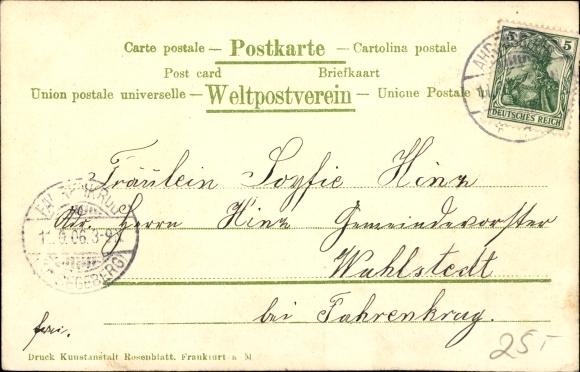 Carte postale — Postkarte — Cartolina postale
Post card Briefkaart
Union postale universelle — Weltpostverein — Unione Postale
5 5
DEUTSCHES REICH
Fräulein Soyfie Hinz
Adr. Herrn Hinz Gemeindevorster
Wahlstedt
bei Fahrenkrug.
FAHRENKRUG
6.06.3-9
SEGEBERG
frei.
25.-
Druck Kunstanstalt Rosenblatt, Frankfurt a M